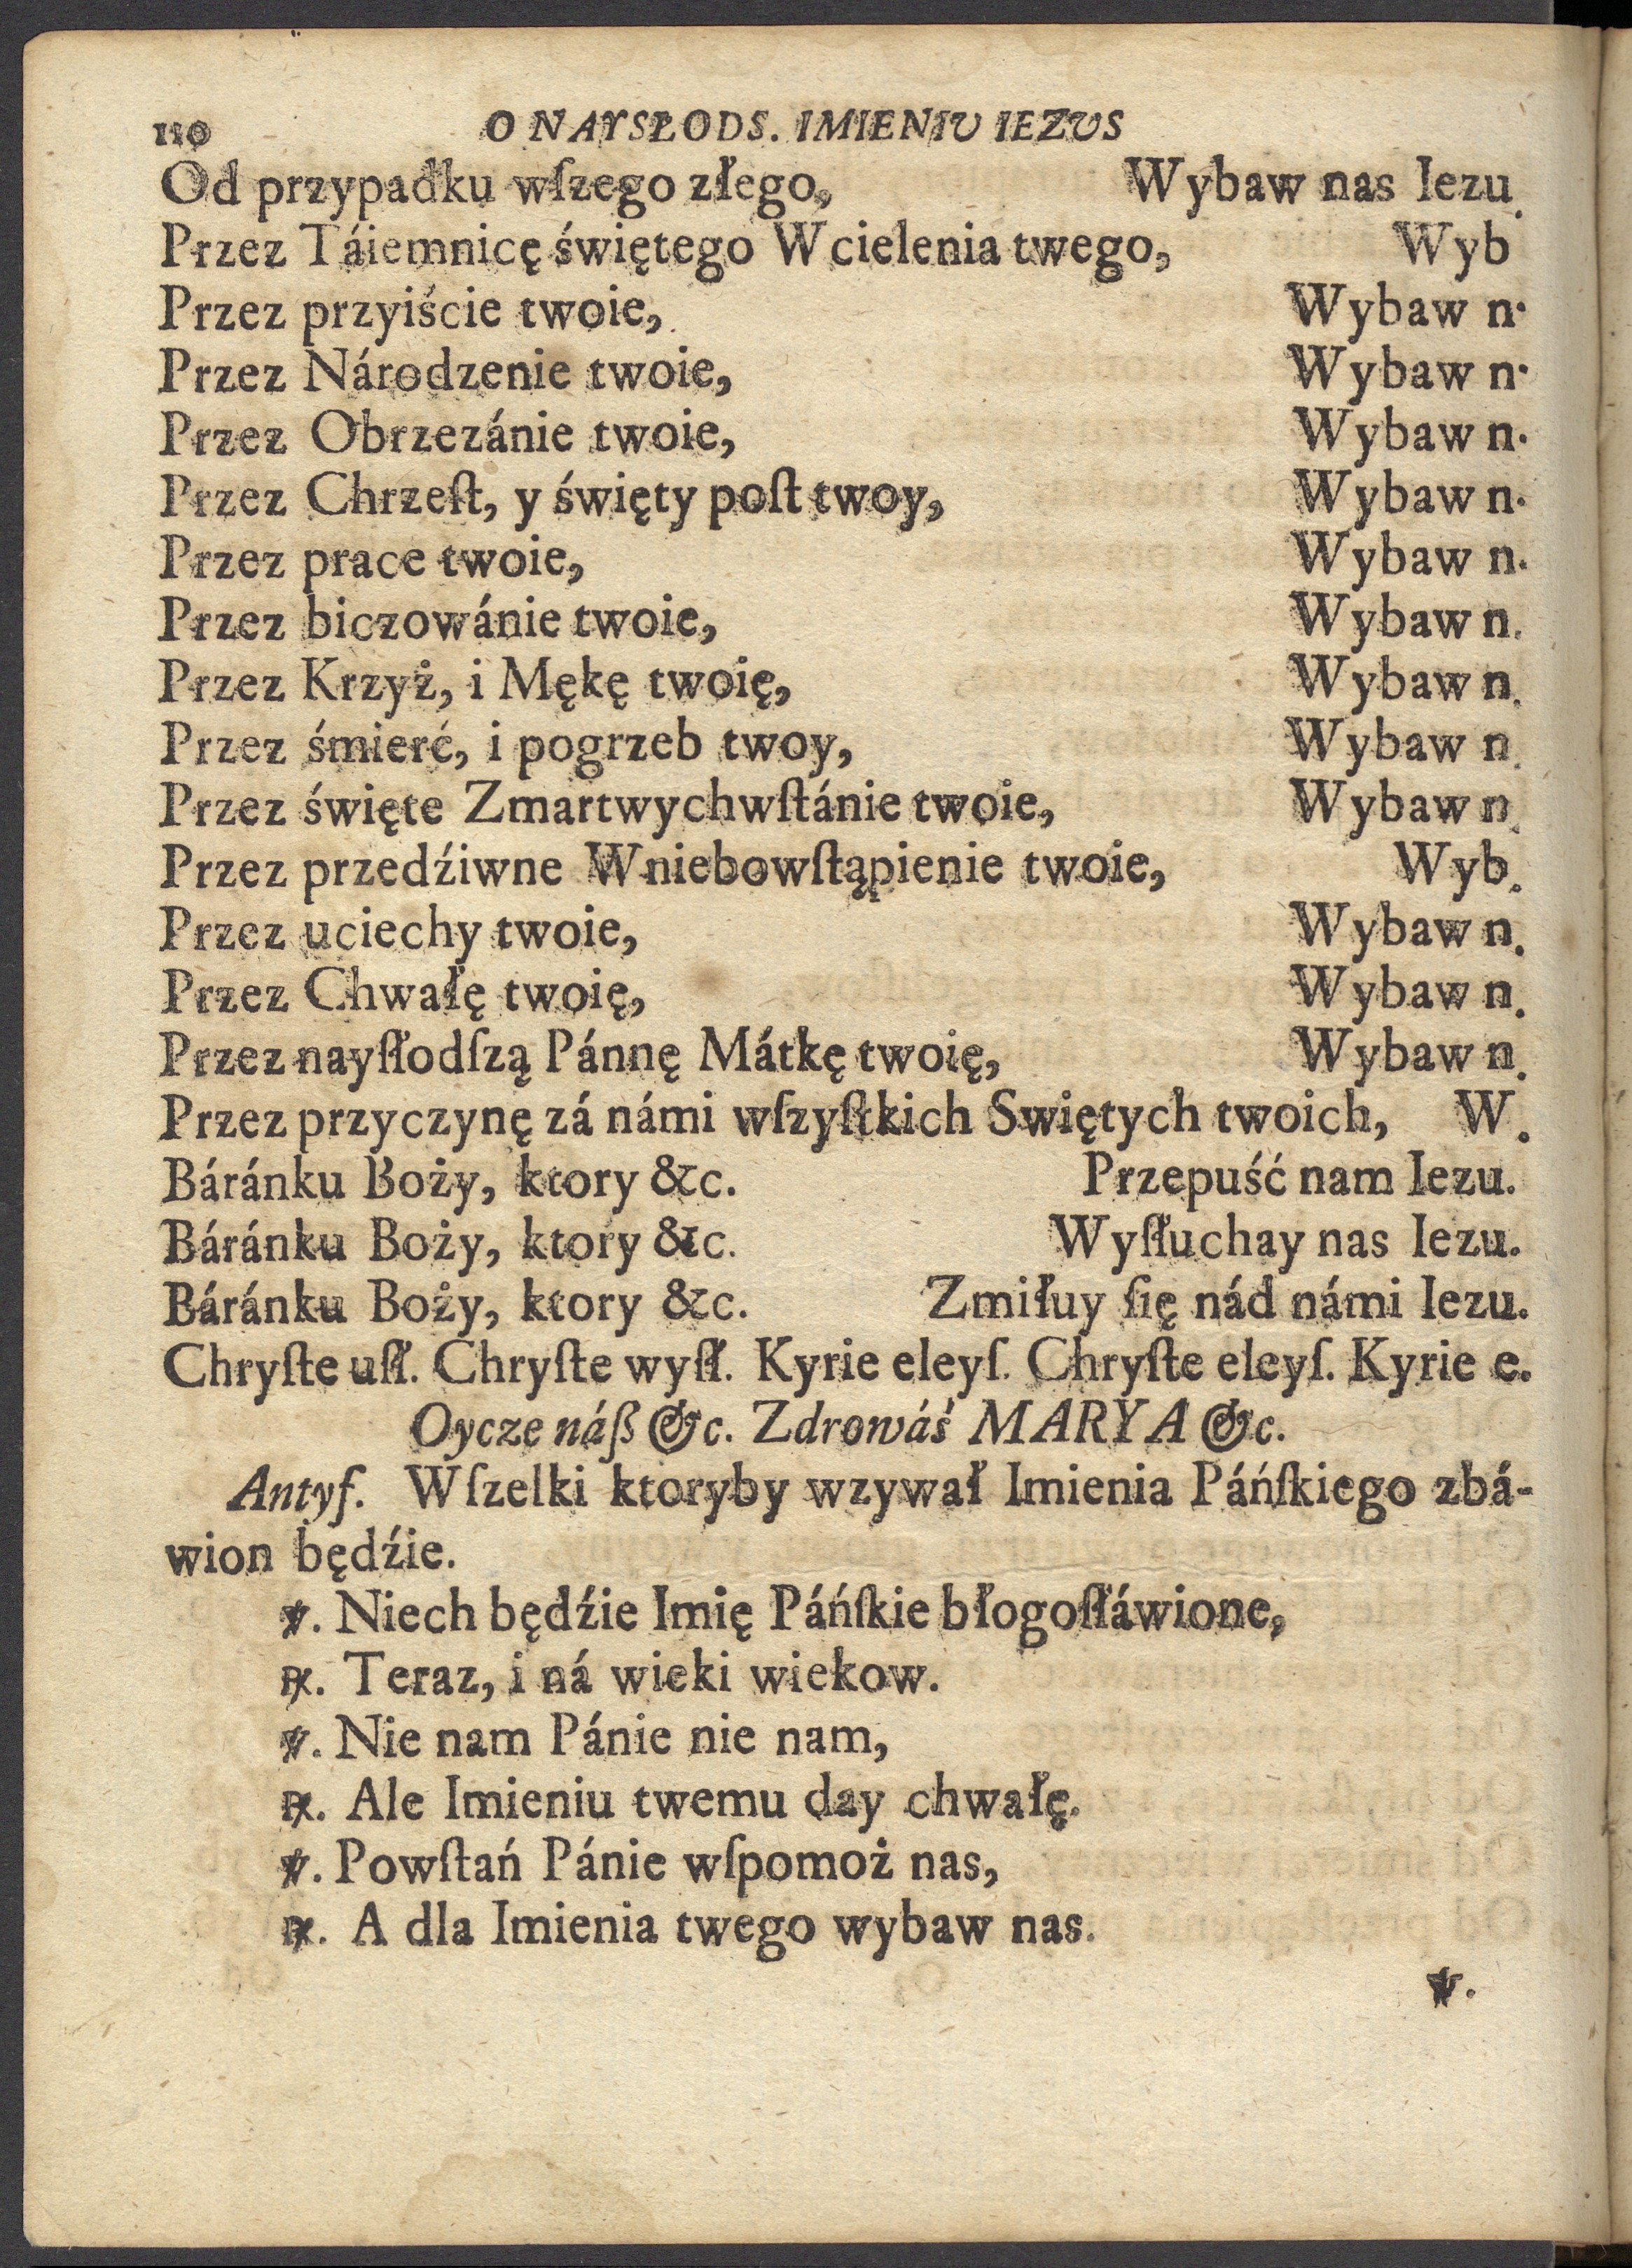 110 O NAYSŁODS. IMIENIU IEZUS
Od przypadku wſzego złego, Wybaw nas Iezu.
Przez Táiemnicę świętego Wcielenia twego, Wyb
Przez przyiście twoie, Wybaw n.
Przez Národzenie twoie, Wybaw n.
Przez Obrzezánie twoie, Wybaw n.
Przez Chrzeſt, y święty poſt twoy, Wybaw n.
Przez prace twoie, Wybaw n.
Przez biczowánie twoie, Wybaw n.
Przez Krzyż, i Mękę twoię, Wybaw n.
Przez śmierć, i pogrzeb twoy, Wybaw n.
Przez święte Zmartwychwſtánie twoie, Wybaw n.
Przez przedźiwne Wniebowſtąpienie twoie, Wyb.
Przez uciechy twoie, Wybaw n.
Przez Chwałę twoię, Wybaw n.
Przez nayſłodſzą Pánnę Mátkę twoię, Wybaw n.
Przez przyczynę zá námi wſzyſtkich Swiętych twoich, W.
Báránku Boży, ktory &c. Przepuść nam Iezu.
Báránku Boży, ktory &c. Wyſłuchay nas Iezu.
Báránku Boży, ktory &c. Zmiłuy ſię nád námi Iezu.
Chryſte uſł. Chryſte wyſł. Kyrie eleyſ. Chryſte eleyſ. Kyrie e.
Oycze náß &c. Zdrowáś MARYA &c.
Antyf. Wſzelki ktoryby wzywał Imienia Páńſkiego zbá-
wion będźie.
℣. Niech będźie Imię Páńſkie błogoſłáwione,
℟. Teraz, i ná wieki wiekow.
℣. Nie nam Pánie nie nam,
℟. Ale Imieniu twemu day chwałę.
℣. Powſtań Pánie wſpomoż nas,
℟. A dla Imienia twego wybaw nas.
℣.